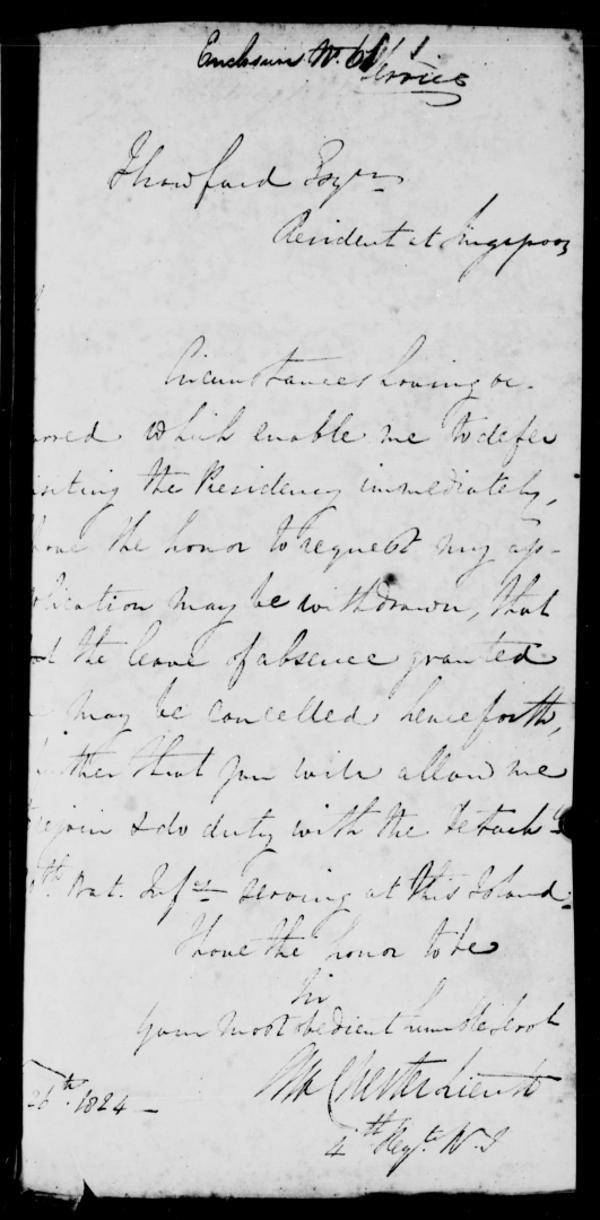 Enclosure No. 61
J Crawfurd Esqre
Resident at Singapoor
Circumstances having oc-
urred which enable me to defer
isiting the Presidency immediately,
have the honor to request my ap-
plication may be withdrawn, that
the leave of absence granted
may be cancelled henceforth,
further that you will allow me
rejoin & do duty with the Detacht
th. Bat. Infy serving at this Island.
I have the honor to be
Sir
Your most obedient humble Servt
Chester Lieut
26th. 1824 –
4th Regt. N. I